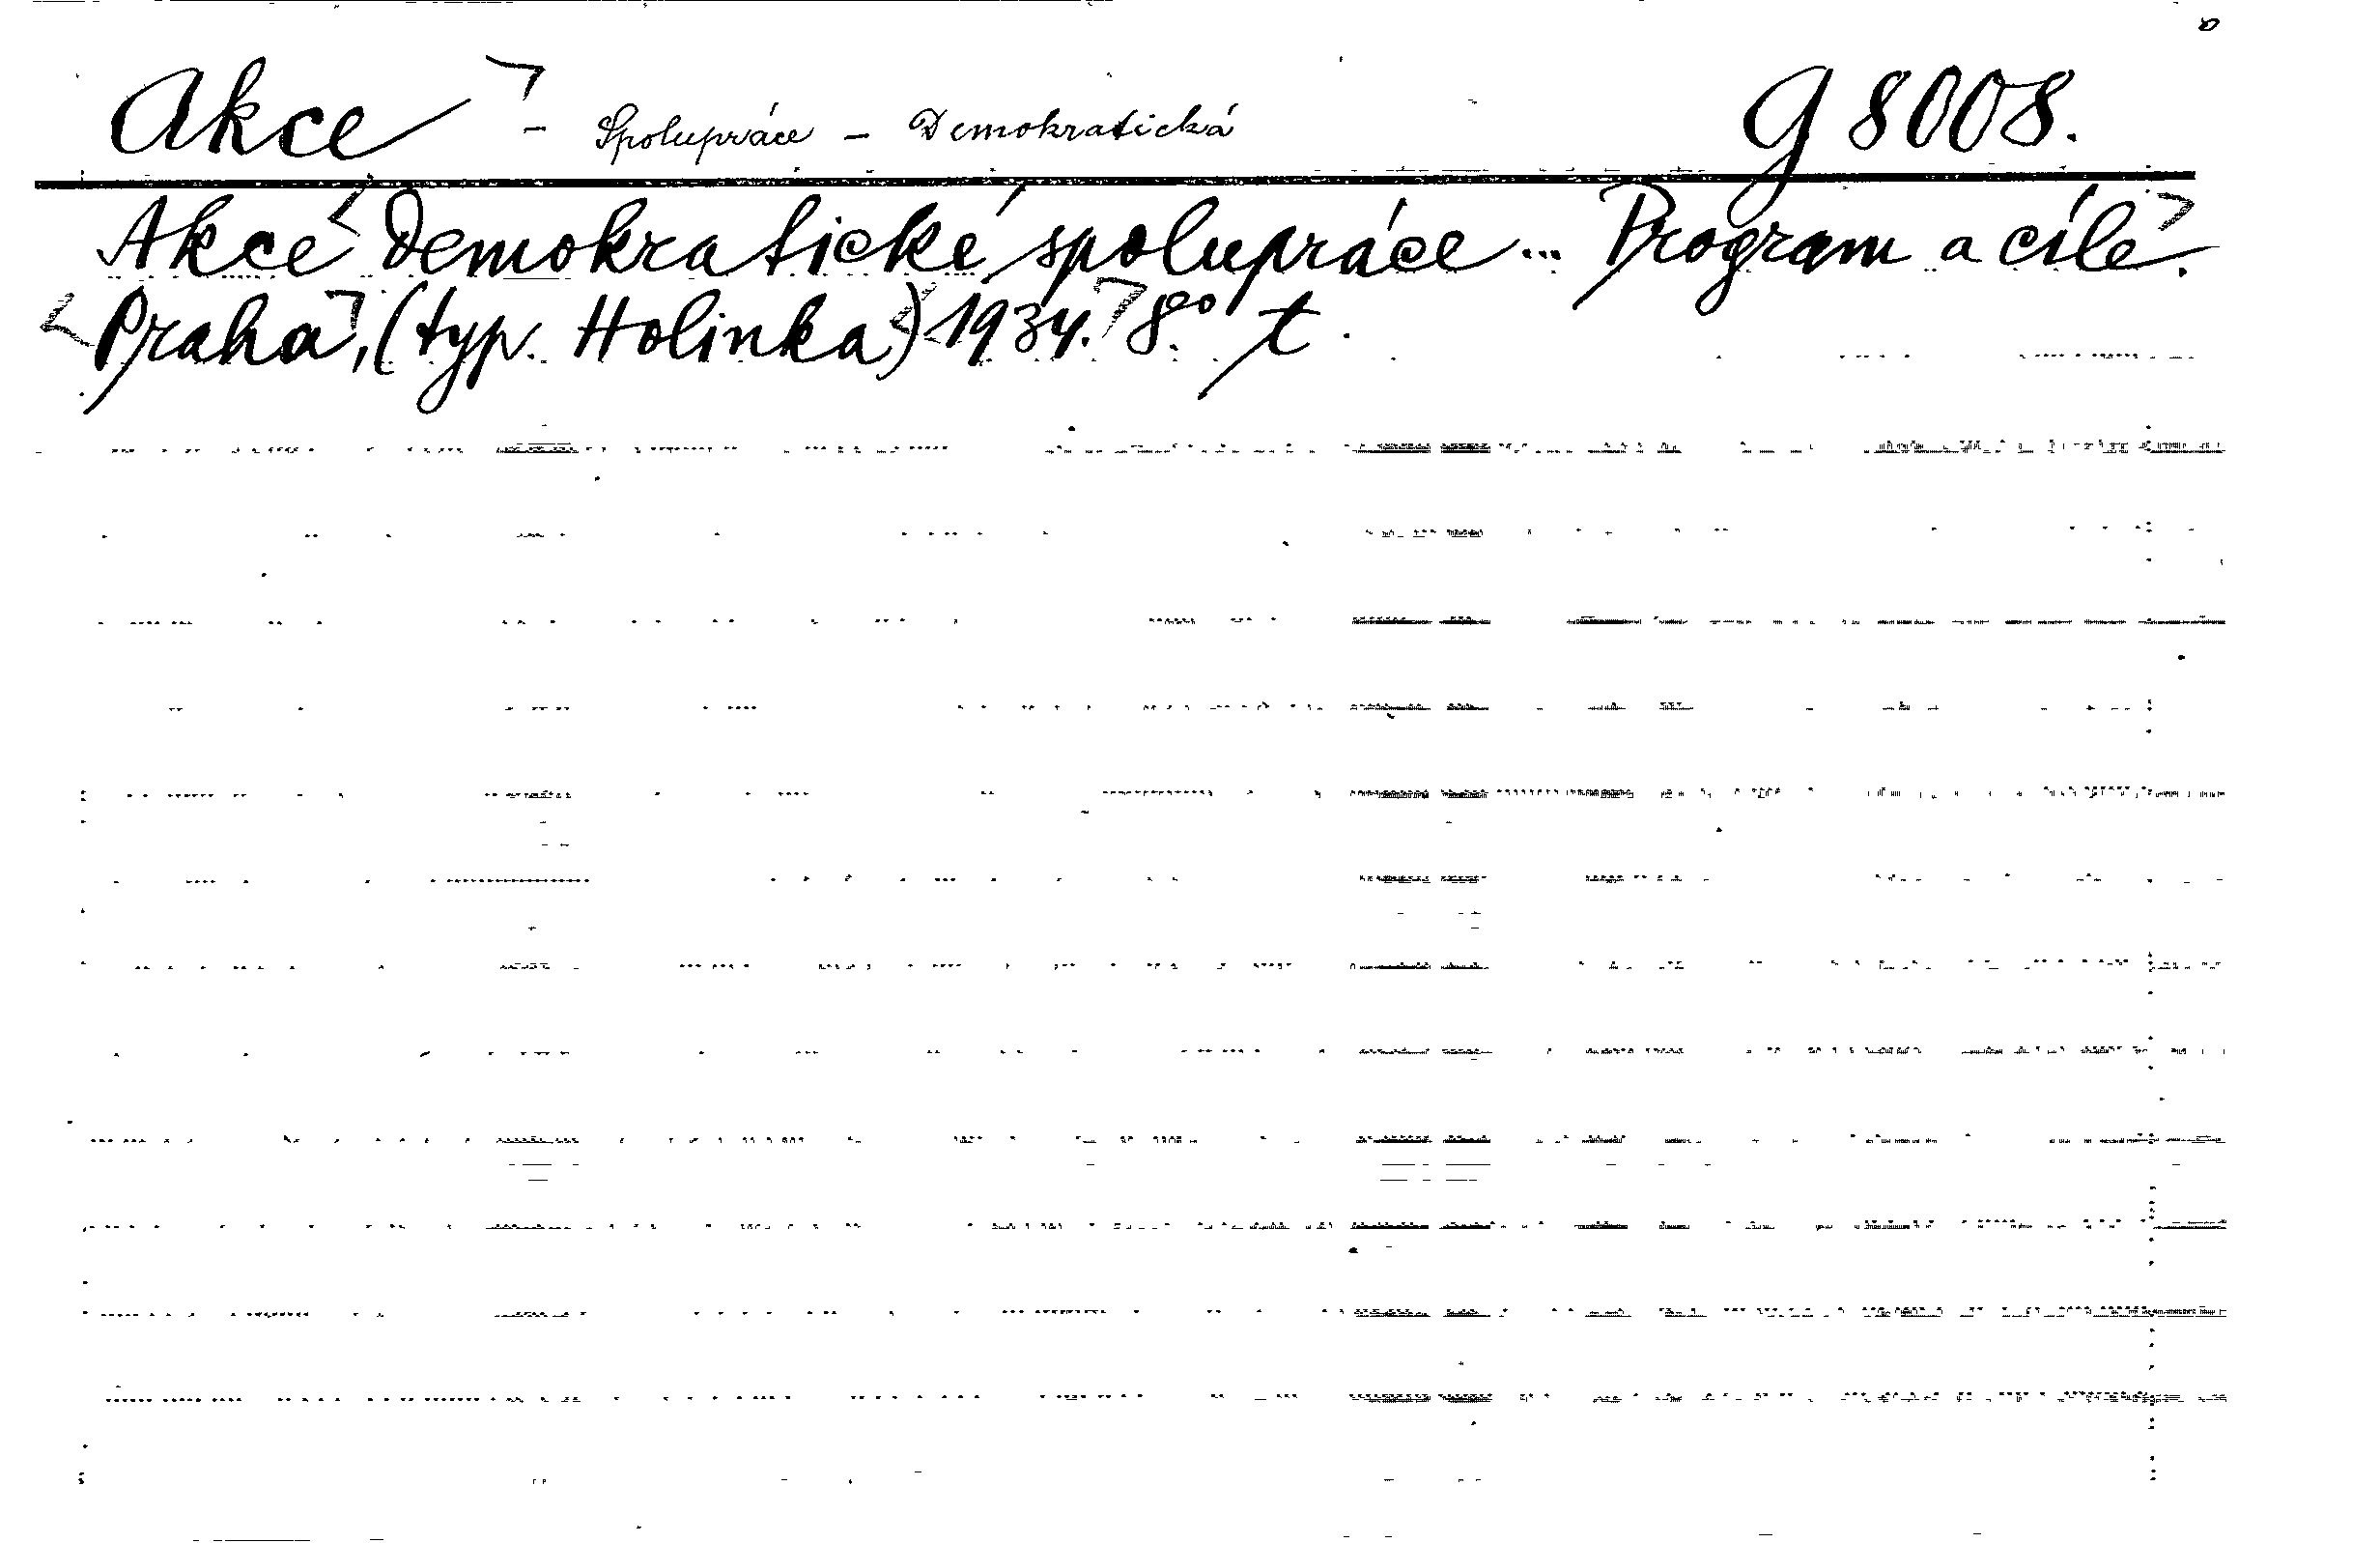 Akce - Spolupráce - Demokratická G 8008.
Akce demokratické spolupráce... Program a cíle.
Praha, (typ. Holinka) 1934. 8° t.